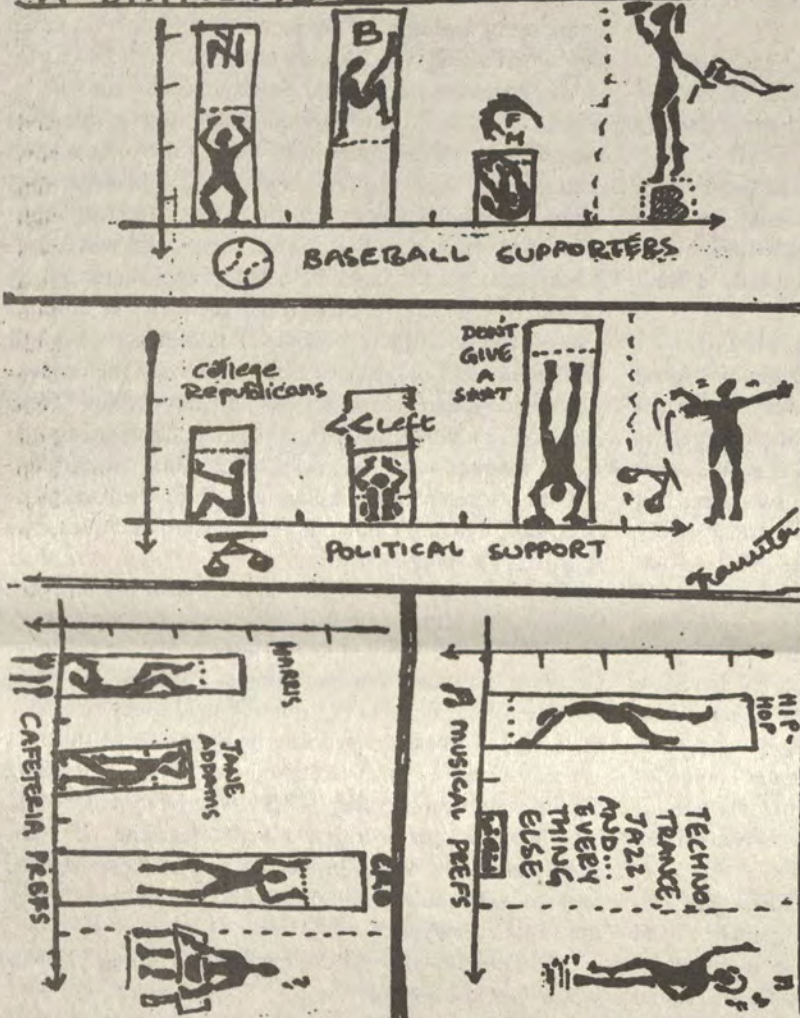 NY
B
BASEBALL SUPPORTERS
B
College
Republicans
<<Left
DON'T
GIVE
A
POLITICAL SUPPORT
HARRIS
JANE
ADDAMS
CAFETERIA PREFS
HIP-
HOP
TECHNO,
TRANCE,
JAZZ,
AND...
EVERY
THING
ELSE
MUSICAL PREFS